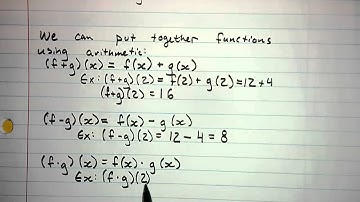 We can put together functions
using arithmetic:
(f+g)(x) = f(x) + g(x)
Ex: (f+g)(2) = f(2) + g(2) = 12 + 4
(f+g)(2) = 16
(f-g)(x) = f(x) - g(x)
Ex: (f-g)(2) = 12 - 4 = 8
(f·g)(x) = f(x) · g(x)
Ex: (f·g)(2)